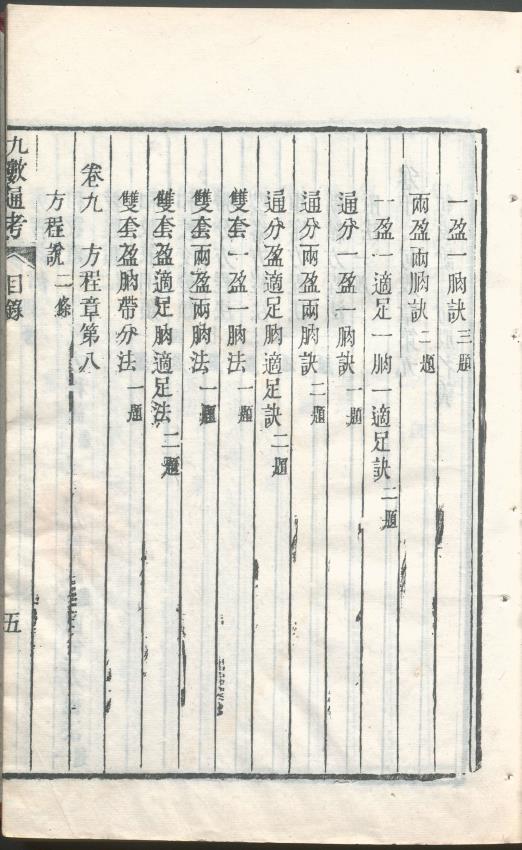 一盈一朒訣三題
兩盈兩朒訣二題
一盈一適足一朒一適足訣二題
通分一盈一朒訣一題
通分兩盈兩朒訣二題
通分盈適足朒適足訣二題
雙套一盈一朒法一題
雙套兩盈兩朒法一題
雙套盈適足朒適足法二題
雙套盈朒帶分法一題
卷九 方程章第八
方程說二條
九數通考 目錄 五